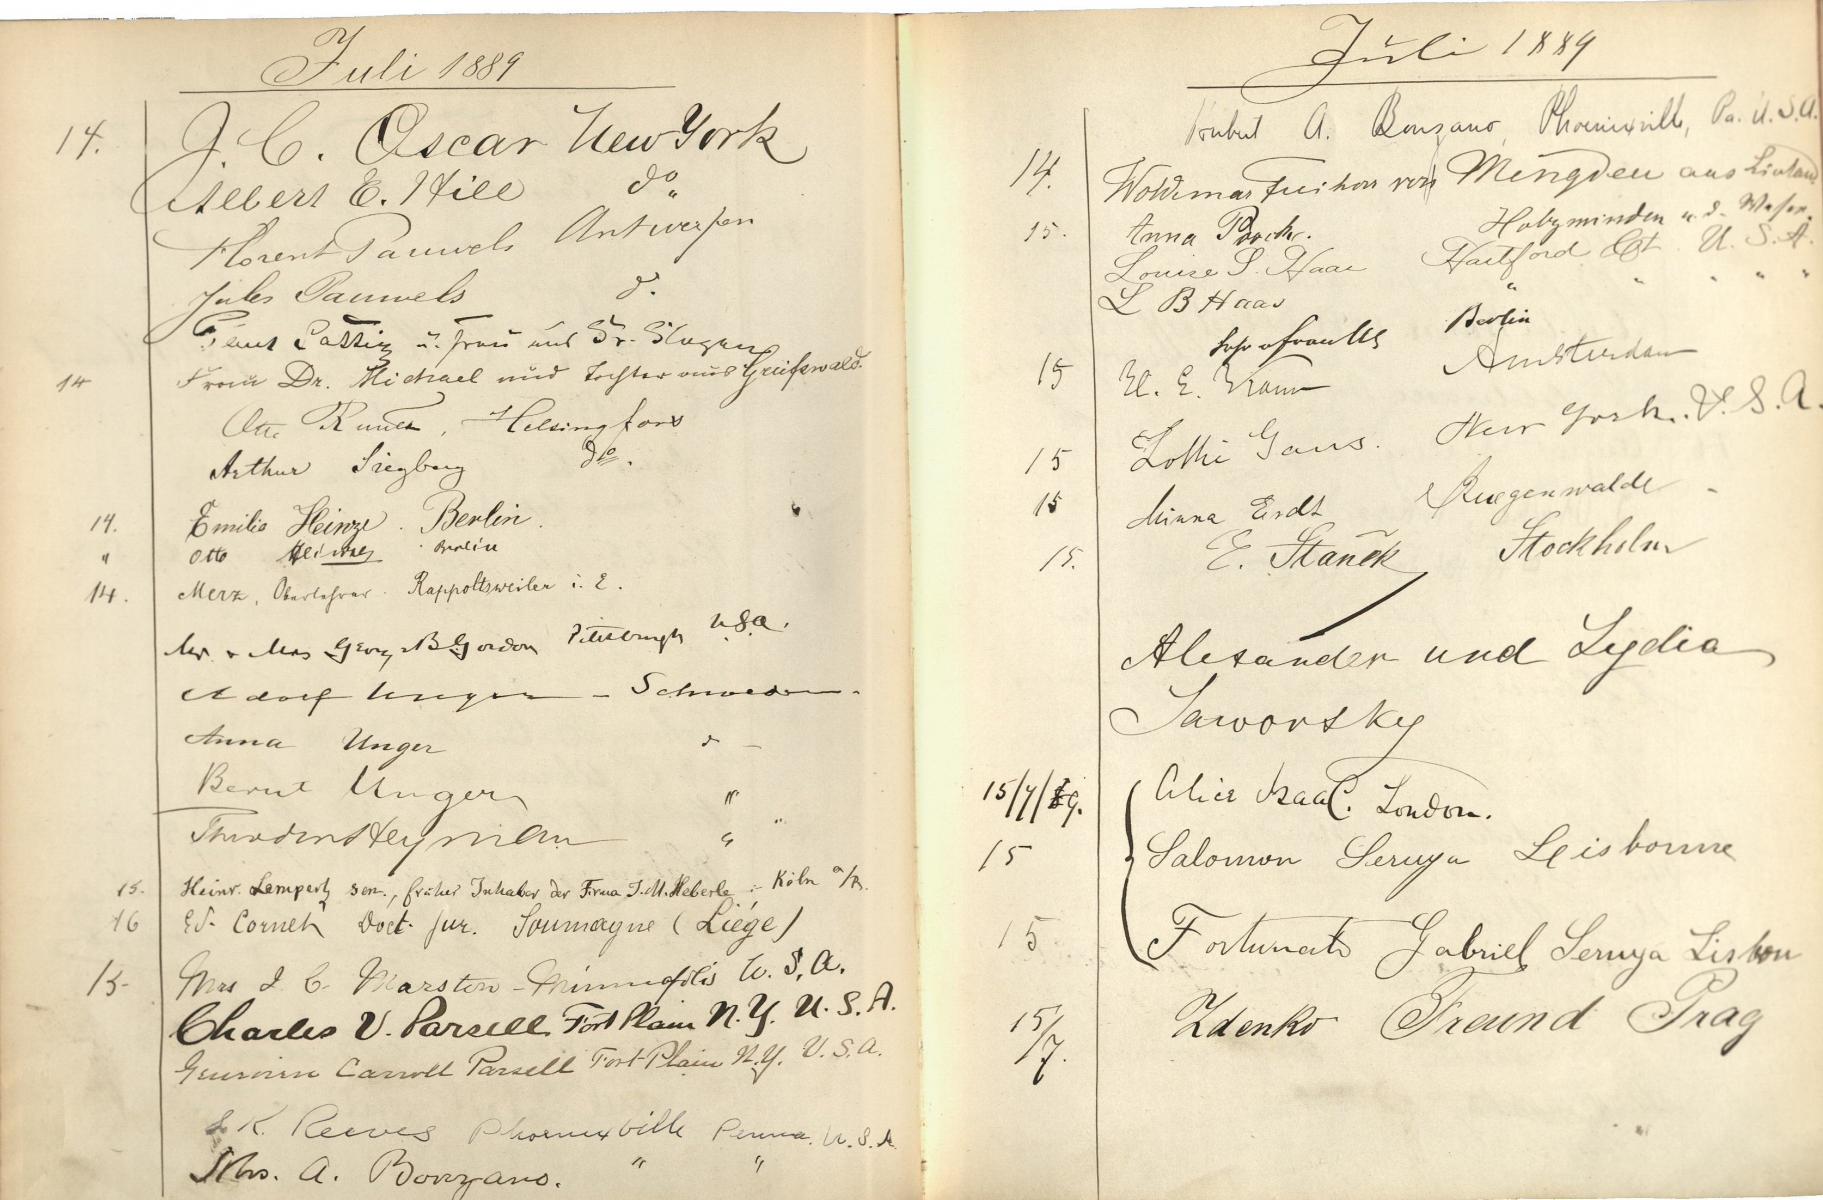 Juli 1889
14. J. C. Oscar New York
Albert E. Hill do
Florent Pauwels Antwerpen
Jules Pauwels d.
u. Frau und Dr.
14 Frau Dr. Michael und Tochter aus Greifswald.
Otto Helsingfors
Arthur Siegberg do.
14. Emilie Heinze. Berlin.
" Otto Heinze Berlin
14. Merz, Oberlehrer. Rappoltsweiler i. E.
Mr. & Mrs Georg B Gordon Pittsburgh U.S.A.
Adolf Unger - Schweden.
Anna Unger d -
Bernt Unger "
Theodor Heyman " "
15. Heinr. Lempertz sen., früher Inhaber der Firma J. M. Heberle Köln a/R.
16 Ed. Cornet Doct. jur. Soumagne (Liége)
15 Mrs J. C. Marston - Minneapolis U. S. A.
Charles V. Parsell Fort Plain N. Y. U. S. A.
Carroll Parsell Fort Plain N.Y. U.S.A.
K. Reeves Phoenixville Penna. U.S.A
Mrs. A. Bonzano. " "
Juli 1889
A. Bonzano, Phoenixville, Pa. U.S.A.
14. Woldemar Freiherr von Mengden aus Livland
15. Anna Holzminden a. d. Weser.
Louise S. Haas Hartford Ct U. S. A.
L B Haas " " " " "
Berlin
15 E. Amsterdam
15 Lottie Gans. New York. U. S. A.
15 Minna Erdt Ruegenwalde -
15. E. Stanek Stockholm
Alexander und Lydia
Jaworsky
15/7/89. Alice Isaac. London.
15 Salomon Seruya Leisbonne
15 Fortunato Gabriel Seruya Lisbon
15/7. Zdenko Freund Prag